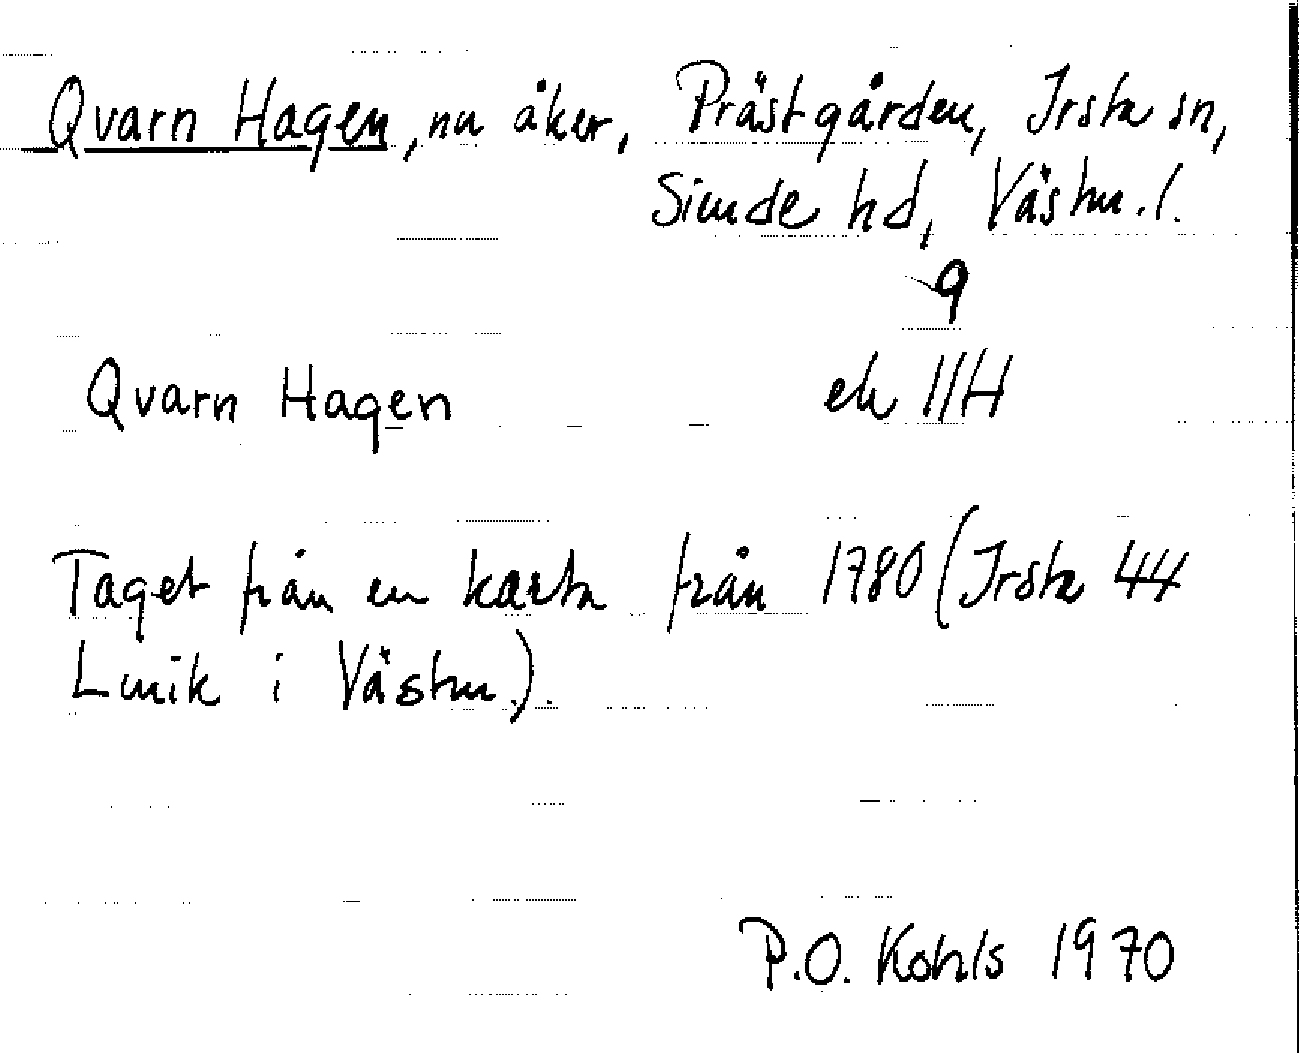 Qvarn Hagen, nu åker, Prästgården, Irsta sn,
Siende hd, Västm. l.
9
Qvarn Hagen ek 11H
Taget från en karta från 1780 (Irsta 44
Lmik i Västm.).
P.O. Kohls 1970